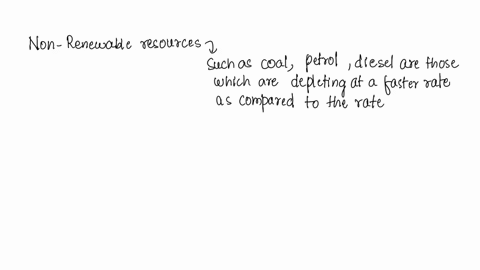 Non-Renewable resources
Such as coal, petrol, diesel are those
which are depleting at a faster rate
as compared to the rate